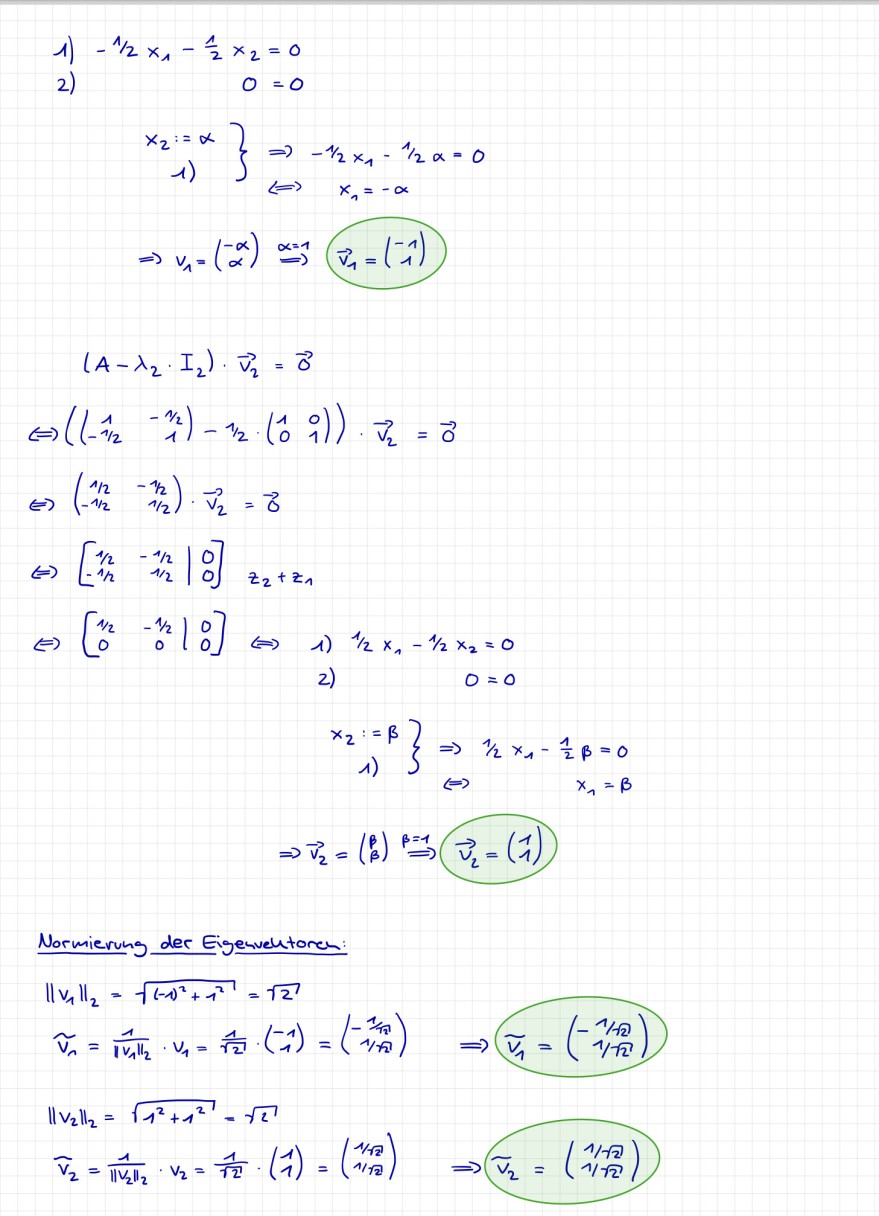 1) -1/2 x₁ - 1/2 x₂ = 0
2) 0 = 0
x₂ := α
1) } ⇒ -1/2 x₁ - 1/2 α = 0
⇔ x₁ = -α
⇒ v₁ = (-α α) α=1 ⇒ v⃗₁ = (-1 1)
(A - λ₂ · I₂) · v⃗₂ = 0⃗
⇔ ((1 -1/2 -1/2 1) - 1/2 · (1 0 0 1)) · v⃗₂ = 0⃗
⇔ (1/2 -1/2 -1/2 1/2) · v⃗₂ = 0⃗
⇔ [1/2 -1/2 | 0 -1/2 1/2 | 0] z₂ + z₁
⇔ [1/2 -1/2 | 0 0 0 | 0] ⇔ 1) 1/2 x₁ - 1/2 x₂ = 0
2) 0 = 0
x₂ := β
1) } ⇒ 1/2 x₁ - 1/2 β = 0
⇔ x₁ = β
⇒ v⃗₂ = (β β) β=1 ⇒ v⃗₂ = (1 1)
Normierung der Eigenvektoren:
||v₁||₂ = √((-1)² + 1²) = √2
ṽ₁ = 1/||v₁||₂ · v₁ = 1/√2 · (-1 1) = (-1/√2 1/√2) ⇒ ṽ₁ = (-1/√2 1/√2)
||v₂||₂ = √(1² + 1²) = √2
ṽ₂ = 1/||v₂||₂ · v₂ = 1/√2 · (1 1) = (1/√2 1/√2) ⇒ ṽ₂ = (1/√2 1/√2)